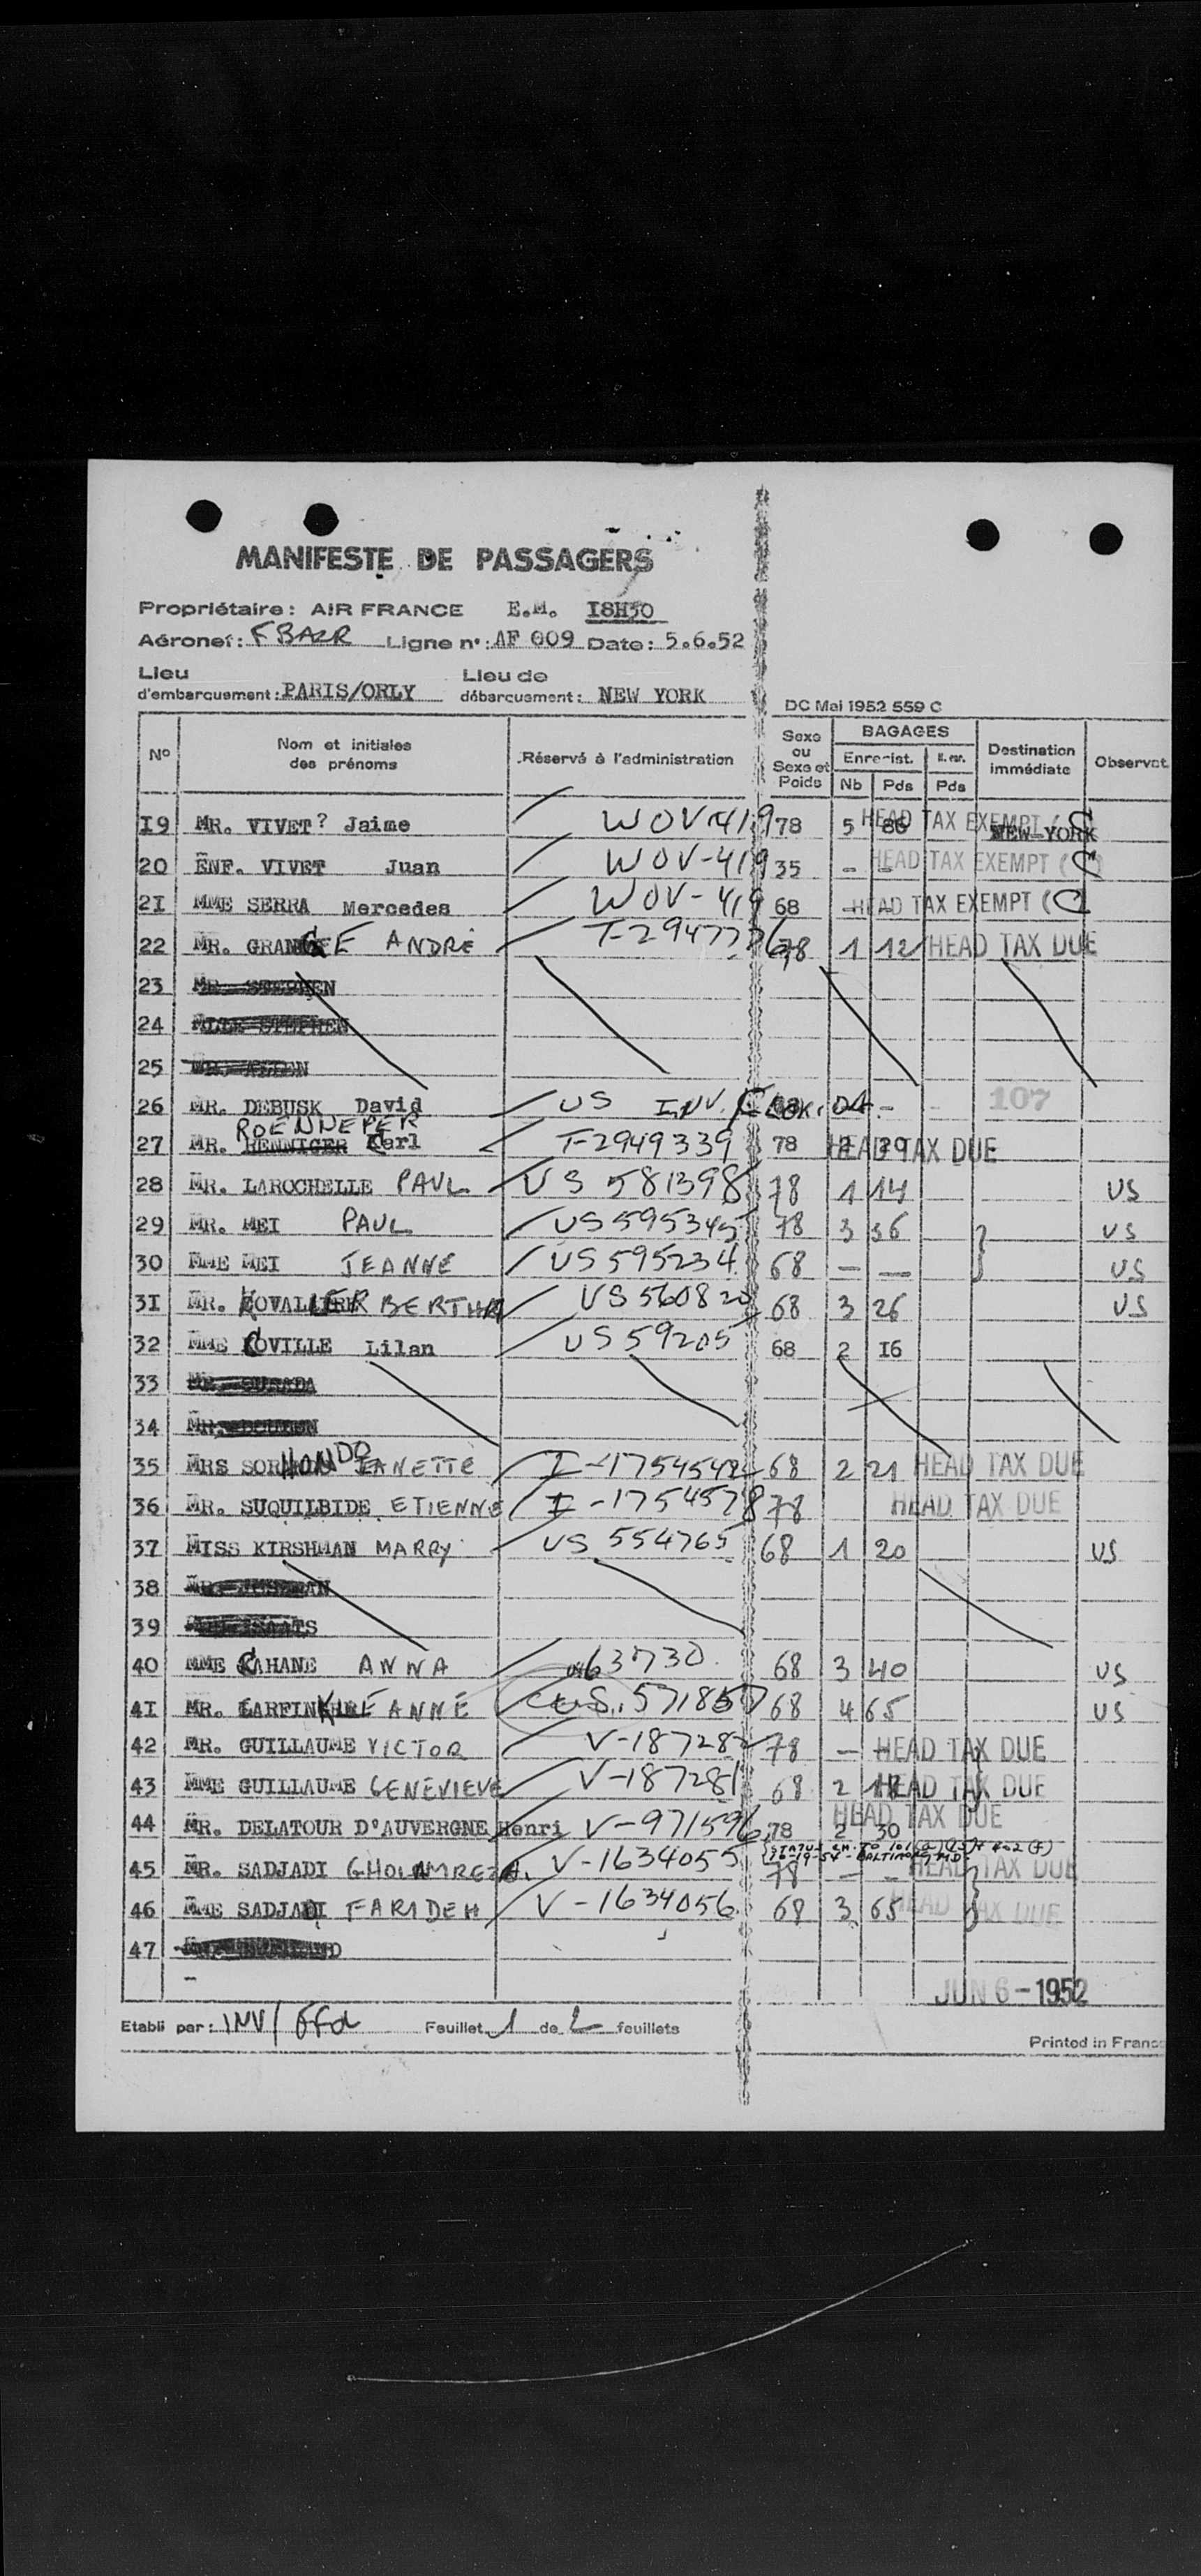 MANIFESTE DE PASSAGERS
Propriétaire: AIR FRANCE E.M. I8H30
Aéronef: FBAZR Ligne n°: AF 009 Date: 5.6.52
Lieu d'embarquement: PARIS/ORLY Lieu de débarquement: NEW YORK
DC Mai 1952 559 C
N° Nom et initiales des prénoms Réservé à l'administration Sexe ou Sexe et Poids BAGAGES Enregist. Nb Pds Pds Destination immédiate Observat.
I9 MR. VIVET? Jaime WOV-419 78 5 86 HEAD TAX EXEMPT (C NEW-YORK
20 ENF. VIVET Juan WOV-419 35 - - HEAD TAX EXEMPT (C)
2I MME SERRA Mercedes WOV-419 68 - HEAD TAX EXEMPT (C
22 MR. GRANGE ANDRÉ T-2947776 78 1 12 HEAD TAX DUE
23 STEPHEN
24 MLLE STEPHEN
25
26 MR. DEBUSK David US INV. - - 107
ROENNEPER
27 MR. HENNIGER Karl T-2949339 78 2 39 HEAD TAX DUE
28 MR. LAROCHELLE PAUL US 581398 78 1 14 US
29 MR. MEI PAUL US 595345 78 3 36 US
30 MME MEI JEANNE US 595234 68 — — US
3I MR. BERTHA US 560820 68 3 26 US
32 MME COVILLE Lilan US 59205 68 2 I6
33
34
35 MRS JEANETTE I-1754542 68 2 21 HEAD TAX DUE
36 MR. SUQUILBIDE ETIENNE I-1754578 78 HEAD TAX DUE
37 MISS KIRSHMAN MARRY US 554765 68 1 20 US
38
39
40 MME CAHANE ANNA 63730 68 3 40 US
4I MR. ANNE U.S. 571857 68 4 65 US
42 MR. GUILLAUME VICTOR V-187282 78 — HEAD TAX DUE
43 MME GUILLAUME GENEVIEVE V-187281 68 2 18 HEAD TAX DUE
44 MR. DELATOUR D'AUVERGNE Henri V-971596 78 2 30 HEAD TAX DUE
STATUS CH. TO BALTIMORE, MD
45 MR. SADJADI GHOLAMREZA. V-1634055 78 — — HEAD TAX DUE
46 MME SADJADI FARIDEH V-1634056 68 3 65 HEAD TAX DUE
47
JUN 6-1952
Etabli par: INV/ Feuillet 1 de 2 feuillets
Printed in France